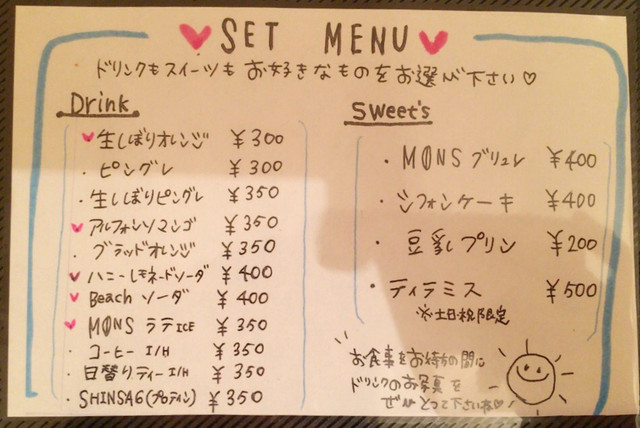 ♥SET MENU♥
ドリンクもスイーツもお好きなものをお選び下さい♡
Drink
♥生しぼりオレンジ ¥300
・ピングレ ¥300
・生しぼりピングレ ¥350
♥アルフォンソマンゴ ¥350
・ブラッドオレンジ ¥350
♥ハニーレモネードソーダ ¥400
♥Beach ソーダ ¥400
♥MØNS ラテICE ¥350
・コーヒー I/H ¥350
・日替りティー I/H ¥350
・SHINSA6(プロテイン) ¥350
Sweet's
・MØNS ブリュレ ¥400
・シフォンケーキ ¥400
・豆乳プリン ¥200
・ティラミス ¥500
※土日祝限定
お食事をお待ちの間に
ドリンクのお写真を
ぜひとって下さいね♡